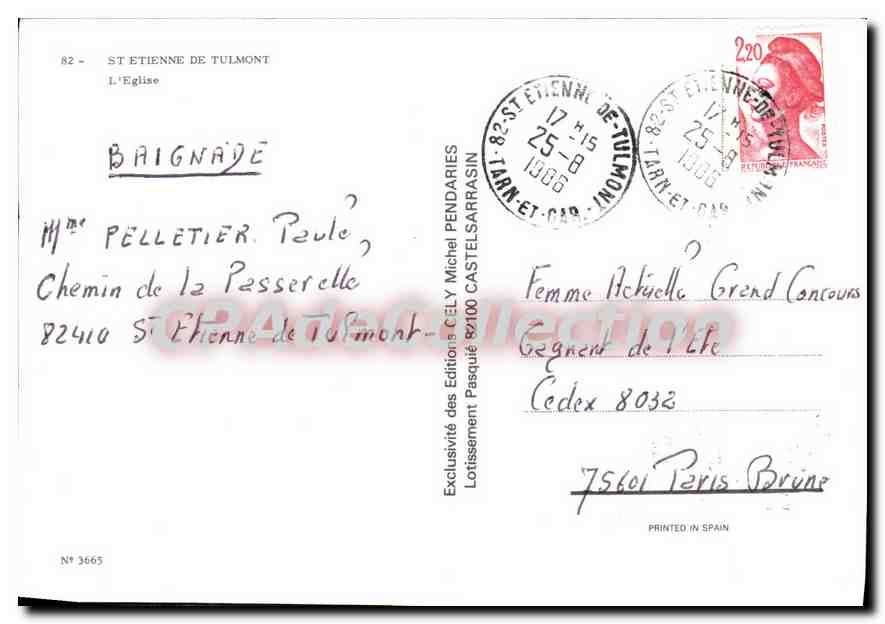 82 - ST ETIENNE DE TULMONT
L'Eglise
BAIGNADE
Mme PELLETIER. Paule
Chemin de la Passerelle
82410 St Etienne de Tulmont-
Exclusivité des Editions CELY Michel PENDARIES
Lotissement Pasquié 82100 CASTELSARRASIN
82-ST ETIENNE-DE-TULMONT
17 H -15
25-8
1986
TARN-ET-GAR.
82-ST ETIENNE-DE-TULMONT
17 H -15
25-8
1986
TARN-ET-GAR.
2,20
POSTES
REPUBLIQUE FRANÇAISE
Femme Actuelle Grand Concours
Gagnant de l'Eté
Cedex 8032
75601 Paris-Brune
PRINTED IN SPAIN
Nº 3665
CPAdeCollection